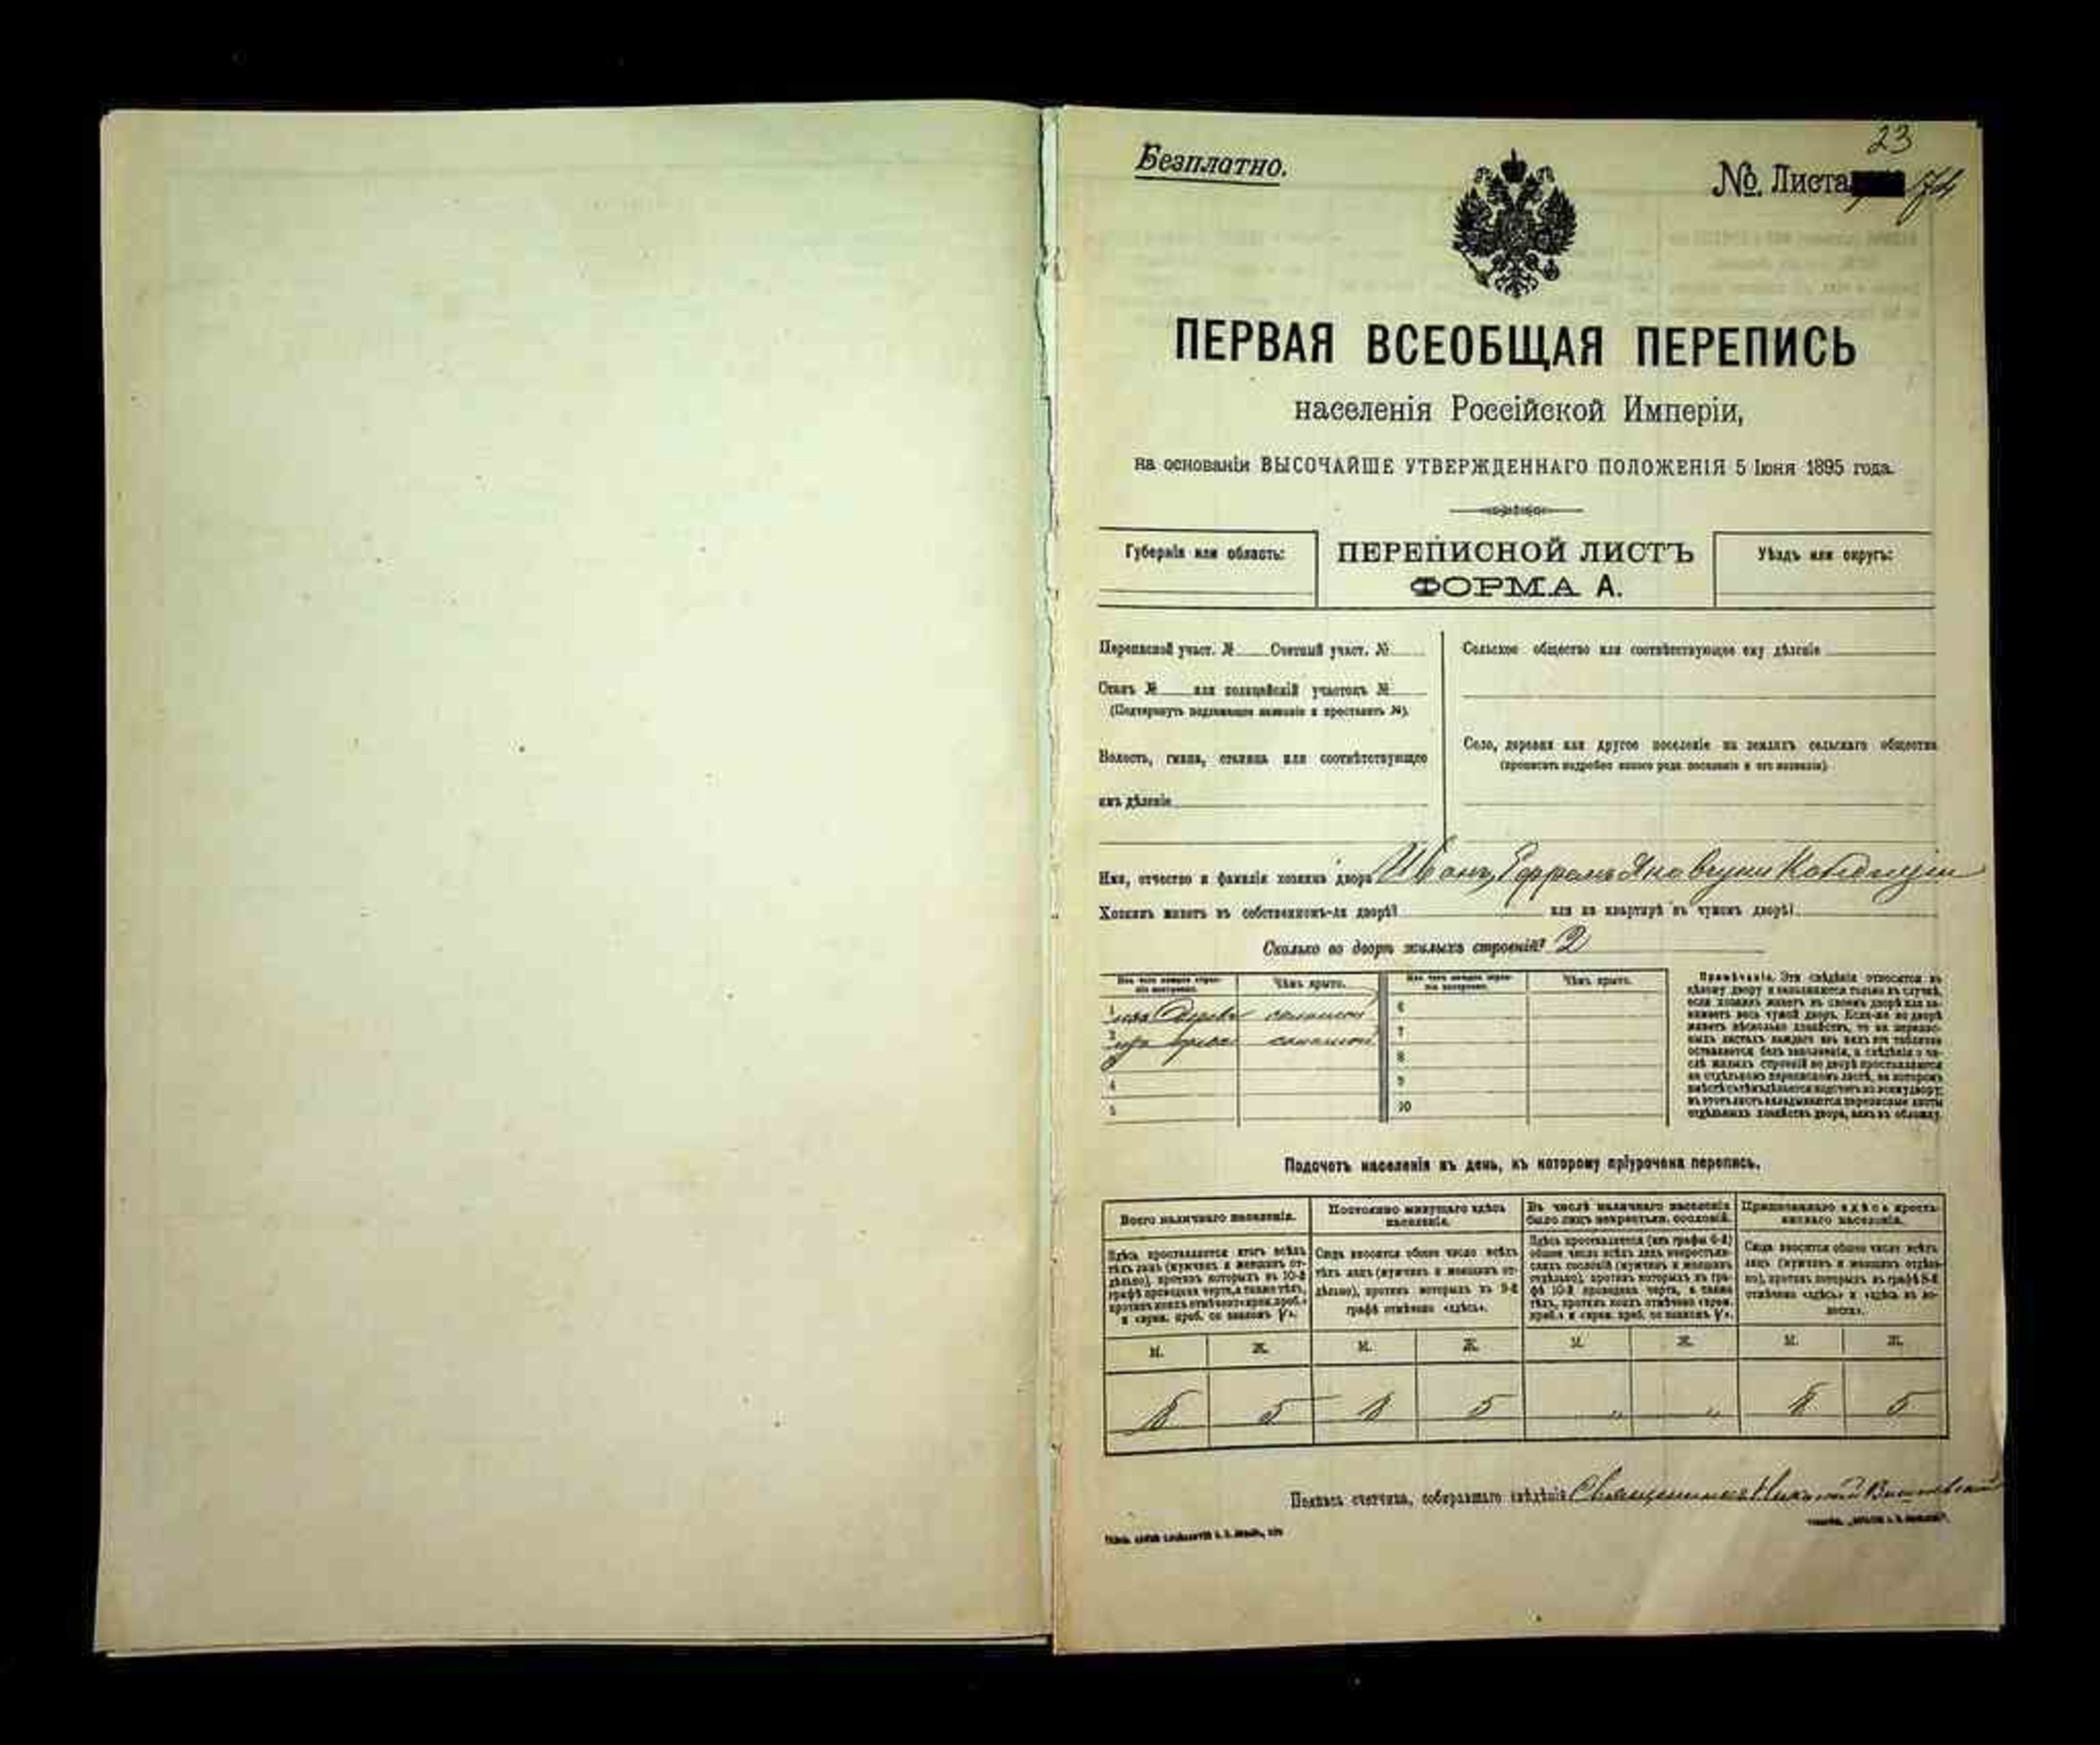 23
Безплатно.
№ Листа 74
ПЕРВАЯ ВСЕОБЩАЯ ПЕРЕПИСЬ
населенія Россійской Имперіи,
на основаніи ВЫСОЧАЙШЕ УТВЕРЖДЕННАГО ПОЛОЖЕНІЯ 5 Іюня 1895 года.
Губернія или область:
ПЕРЕПИСНОЙ ЛИСТЪ
ФОРМА А.
Уѣздъ или округъ:
Переписной участ. № Счетный участ. №
Станъ № или полицейскій участокъ №
(Подчеркнуть надлежащее названіе и проставить №).
Волость, гмина, станица или соотвѣтствующее
имъ дѣленіе
Сельское общество или соотвѣтствующее ему дѣленіе
Село, деревня или другое поселеніе на земляхъ сельскаго общества
(прописать подробно какого рода поселеніе и его названіе).
Имя, отчество и фамилія хозяина двора Иванъ
Хозяинъ живетъ въ собственномъ-ли дворѣ? или на квартирѣ въ чужомъ дворѣ?
Сколько во дворѣ жилыхъ строеній? 2
Изъ чего каждое строеніе построено. Чѣмъ крыто. Изъ чего каждое строеніе построено. Чѣмъ крыто.
1 изъ дерева соломой 6
2 соломой 7
8
4 9
5 10
Примѣчаніе. Эти свѣдѣнія относятся къ
цѣлому двору и заполняются только въ случаѣ,
если хозяинъ живетъ въ своемъ дворѣ или за-
нимаетъ весь чужой дворъ. Если-же во дворѣ
живетъ нѣсколько хозяйствъ, то на перепис-
ныхъ листахъ каждаго изъ нихъ эта табличка
оставляется безъ заполненія, а свѣдѣнія о чи-
слѣ жилыхъ строеній во дворѣ проставляются
на отдѣльномъ переписномъ листѣ, на которомъ
вмѣстѣ съ тѣмъ дѣлается подсчетъ по всему двору;
въ этотъ листъ вкладываются переписные листы
отдѣльныхъ хозяйствъ двора, какъ въ обложку.
Подсчетъ населенія въ день, къ которому пріурочена перепись.
Всего наличнаго населенія.
Здѣсь проставляется итогъ всѣхъ
тѣхъ лицъ (мужчинъ и женщинъ от-
дѣльно), противъ которыхъ въ 10-й
графѣ проведена черта, а также тѣхъ,
противъ коихъ отмѣчено «врем. проб.»
и «врем. проб. со знакомъ V».
Постоянно живущаго здѣсь
населенія.
Сюда вносится общее число всѣхъ
тѣхъ лицъ (мужчинъ и женщинъ от-
дѣльно), противъ которыхъ въ 9-й
графѣ отмѣчено «здѣсь».
Въ числѣ наличнаго населенія
было лицъ некрестьян. сословій.
Здѣсь проставляется (изъ графы 4-й)
общее число всѣхъ лицъ некрестьян-
скихъ сословій (мужчинъ и женщинъ
отдѣльно), противъ которыхъ въ гра-
фѣ 10-й проведена черта, а также
тѣхъ, противъ коихъ отмѣчено «врем.
проб.» и «врем. проб. со знакомъ V».
Приписаннаго здѣсь кресть-
янскаго населенія.
Сюда вносится общее число всѣхъ
лицъ (мужчинъ и женщинъ отдѣль-
но), противъ которыхъ въ графѣ 8-й
отмѣчено «здѣсь» и «здѣсь въ во-
лости».
М. Ж. М. Ж. М. Ж. М. Ж.
8 5 8 5 „ „ 8 5
Подпись счетчика, собиравшаго свѣдѣнія Священникъ Николай